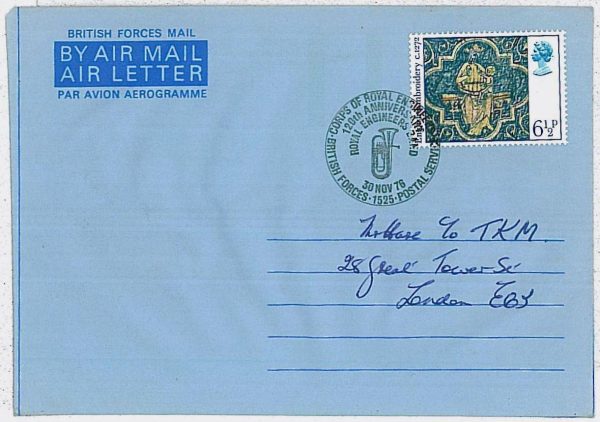 BRITISH FORCES MAIL
BY AIR MAIL
AIR LETTER
PAR AVION AEROGRAMME
embroidery c.1272
6½p
CORPS OF ROYAL
120th ANNIVERSARY
ROYAL ENGINEERS
30 NOV 76
BRITISH FORCES · 1525 · POSTAL SERVICE
c/o TKM.
28 Great Tower St
London EC3